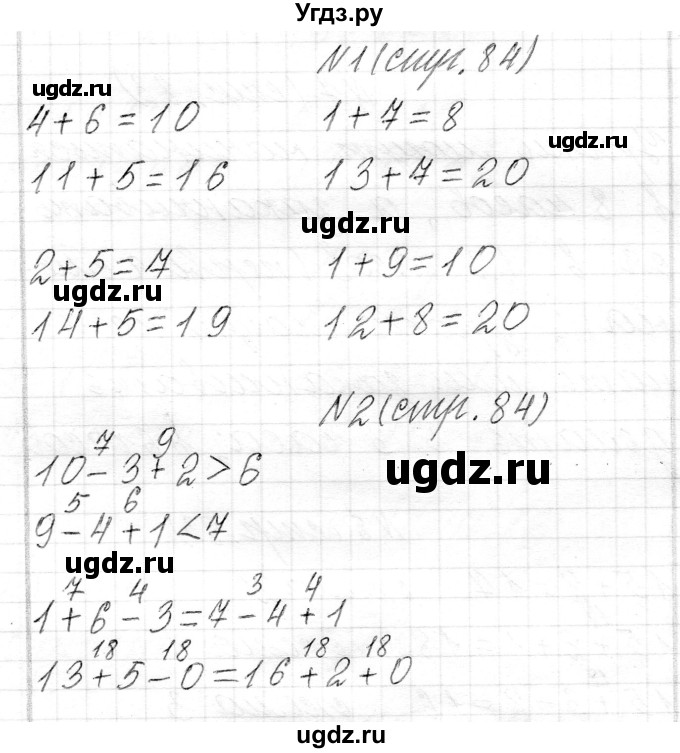 Угдз.ру
N1(стр. 84)
ugdz.ru
4+6=10 1+7=8
ugdz.ru
11+5=16 13+7=20
ugdz.ru
2+5=7 1+9=10
ugdz.ru
14+5=19 12+8=20
N2(стр. 84)
7 9
10-3+2>6
ugdz.ru
5 6
9-4+1<7
ugdz.ru
7 4 3 4
1+6-3=7-4+1
18 18 18 18
13+5-0=16+2+0
ugdz.ru